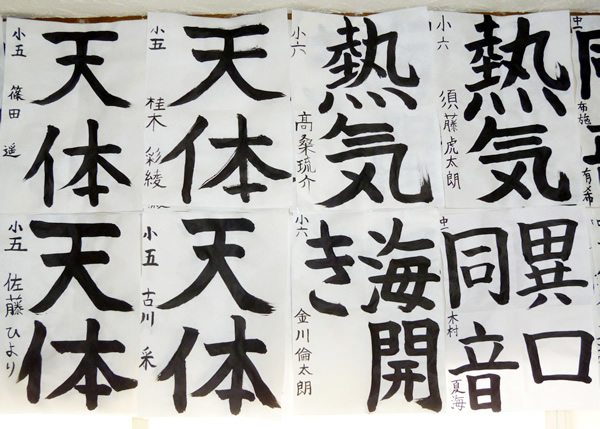 天体
小五 篠田 遥
天体
小五 桂木 彩綾
熱気
小六 髙桑琉介
熱気
小六 須藤虎太朗
中一 布施 有希
天体
小五 佐藤ひより
天体
小五 古川 采
海開
き
小六 金川倫太朗
異口
同音
中一 木村 夏海